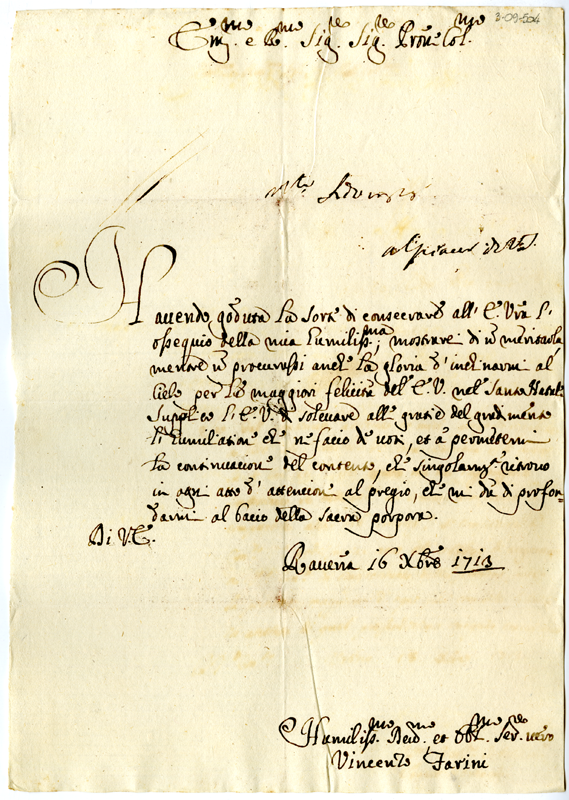 3-09-504
Em.mo e R.mo Sig.re Sig.re Prone Col.mo
Hauendo goduta la sorte di consecrare all' E. Vra l'
ossequio della mia humiliss.ma; mostrarei di
mente procurassi anche la gloria d' inclinarmi al
Cielo per le maggiori felicità del E. V. nel Santo Natale
Supplico l' E. V. di solevare alle gratie del gradimento
l' humiliatione che ne facio de voti, et à permettermi
la continuacione del contento, che singolarm.te ritrovo
in ogni atto d' attencione al pregio, che mi dà di profon-
darmi al bacio della sacra porpora.
Di V. E.
Ravenna 16 Xbre 1713
Humiliss.mo Devo.mo et Obl.mo Ser.re vero
Vincenzo Farini